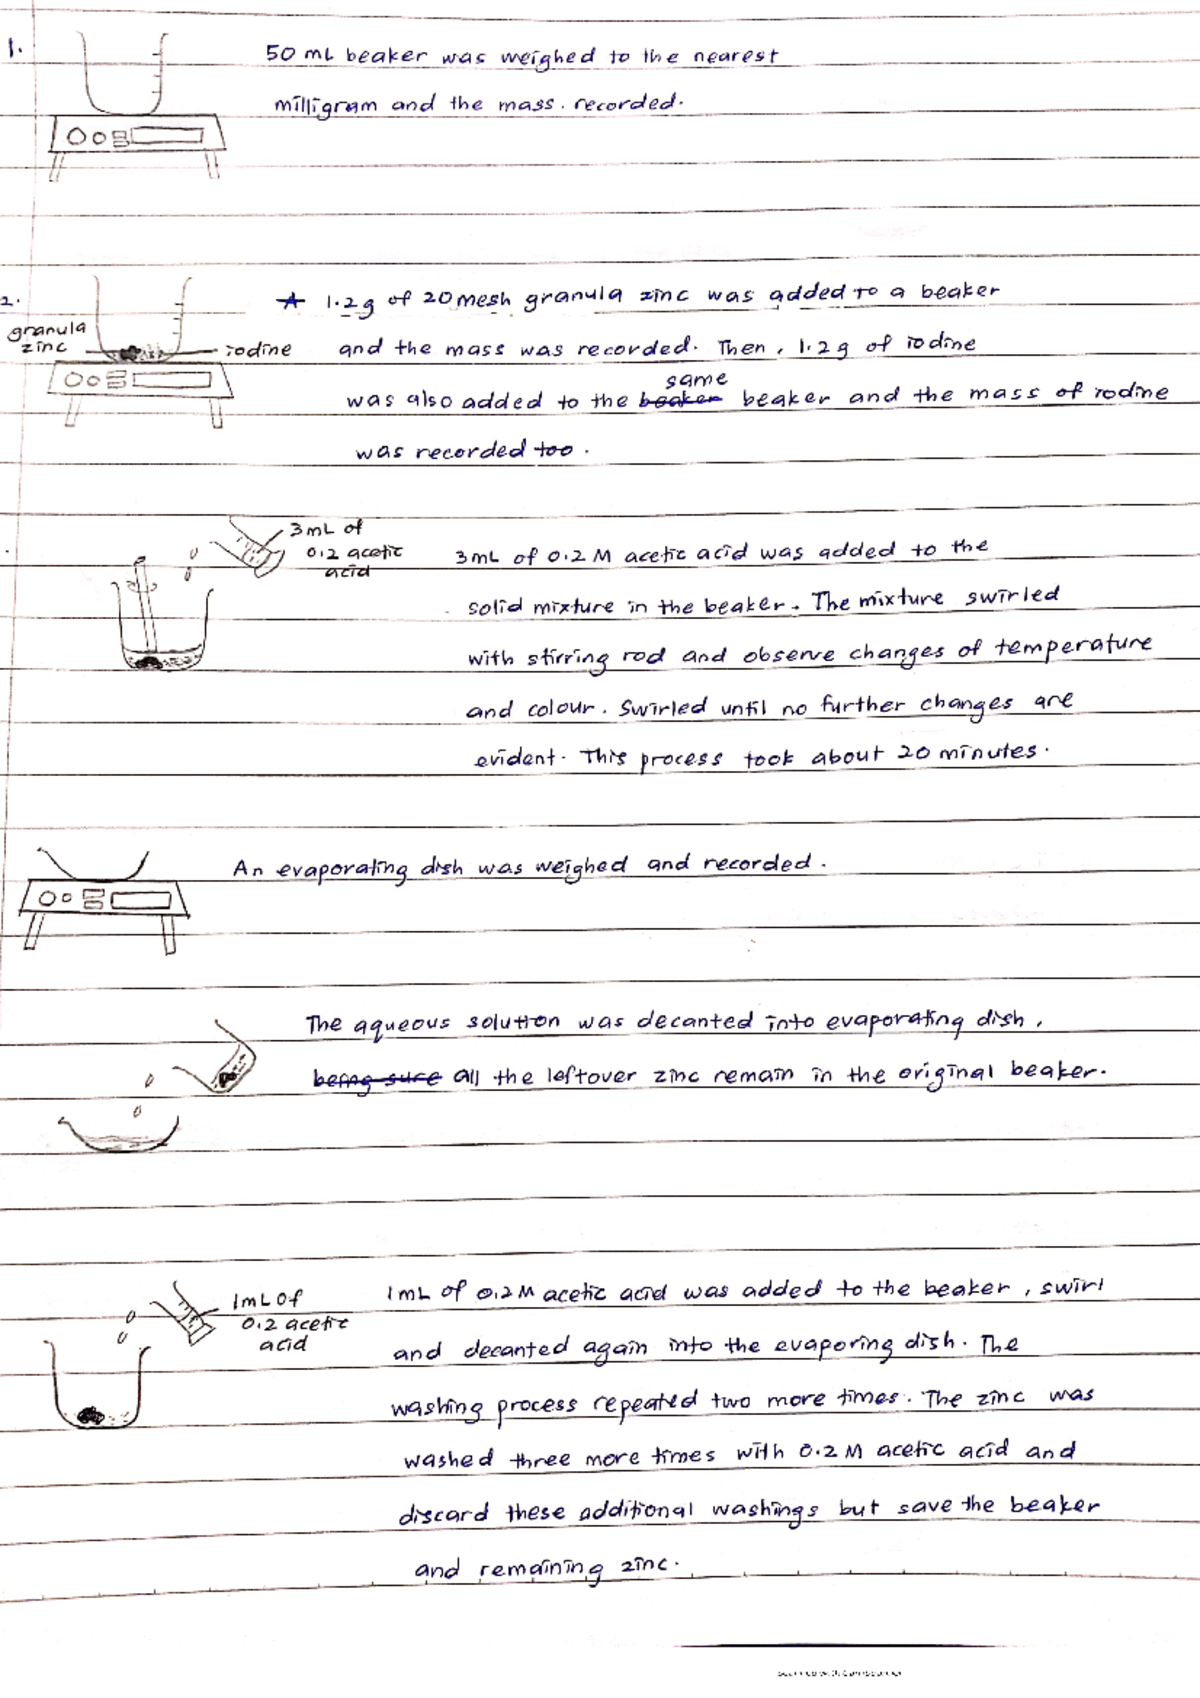 1.
50 mL beaker was weighed to the nearest
milligram and the mass. recorded.
2.
1.2g of 20 mesh granula zinc was added to a beaker
granula
zinc
iodine
and the mass was recorded. Then, 1.2g of iodine
same
was also added to the beaker beaker and the mass of iodine
was recorded too.
3mL of
0.2 acetic
acid
3mL of 0.2 M acetic acid was added to the
solid mixture in the beaker. The mixture swirled
with stirring rod and observe changes of temperature
and colour. Swirled until no further changes are
evident. This process took about 20 minutes.
An evaporating dish was weighed and recorded.
The aqueous solution was decanted into evaporating dish,
being sure all the leftover zinc remain in the original beaker.
1mL of
0.2 acetic
acid
1mL of 0.2M acetic acid was added to the beaker, swirl
and decanted again into the evaporing dish. The
washing process repeated two more times. The zinc was
washed three more times with 0.2 M acetic acid and
discard these additional washings but save the beaker
and remaining zinc.